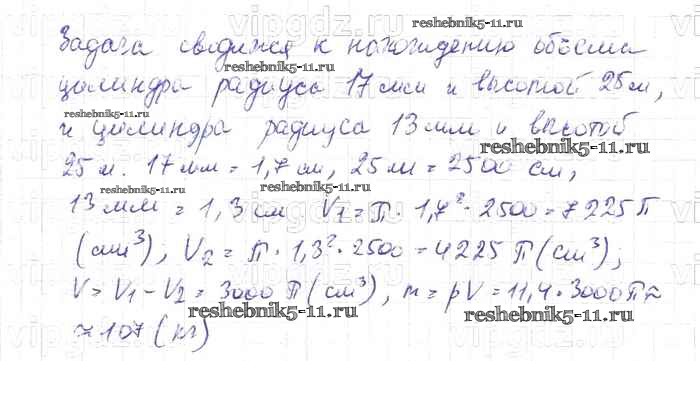 Задача сводится к нахождению объема
цилиндра радиуса 17 мм и высотой 25 м,
и цилиндра радиуса 13 мм и высотой
25 м. 17 мм = 1,7 см, 25 м = 2500 см,
13 мм = 1,3 см V₁ = π · 1,7² · 2500 = 7225 π
(см³), V₂ = π · 1,3² · 2500 = 4225 π (см³);
V = V₁ - V₂ = 3000 π (см³), m = ρV = 11,4 · 3000 π ≈
≈ 107 (кг)
reshebnik5-11.ru
reshebnik5-11.ru
reshebnik5-11.ru
reshebnik5-11.ru
reshebnik5-11.ru
reshebnik5-11.ru
reshebnik5-11.ru
reshebnik5-11.ru
vipgdz.ru